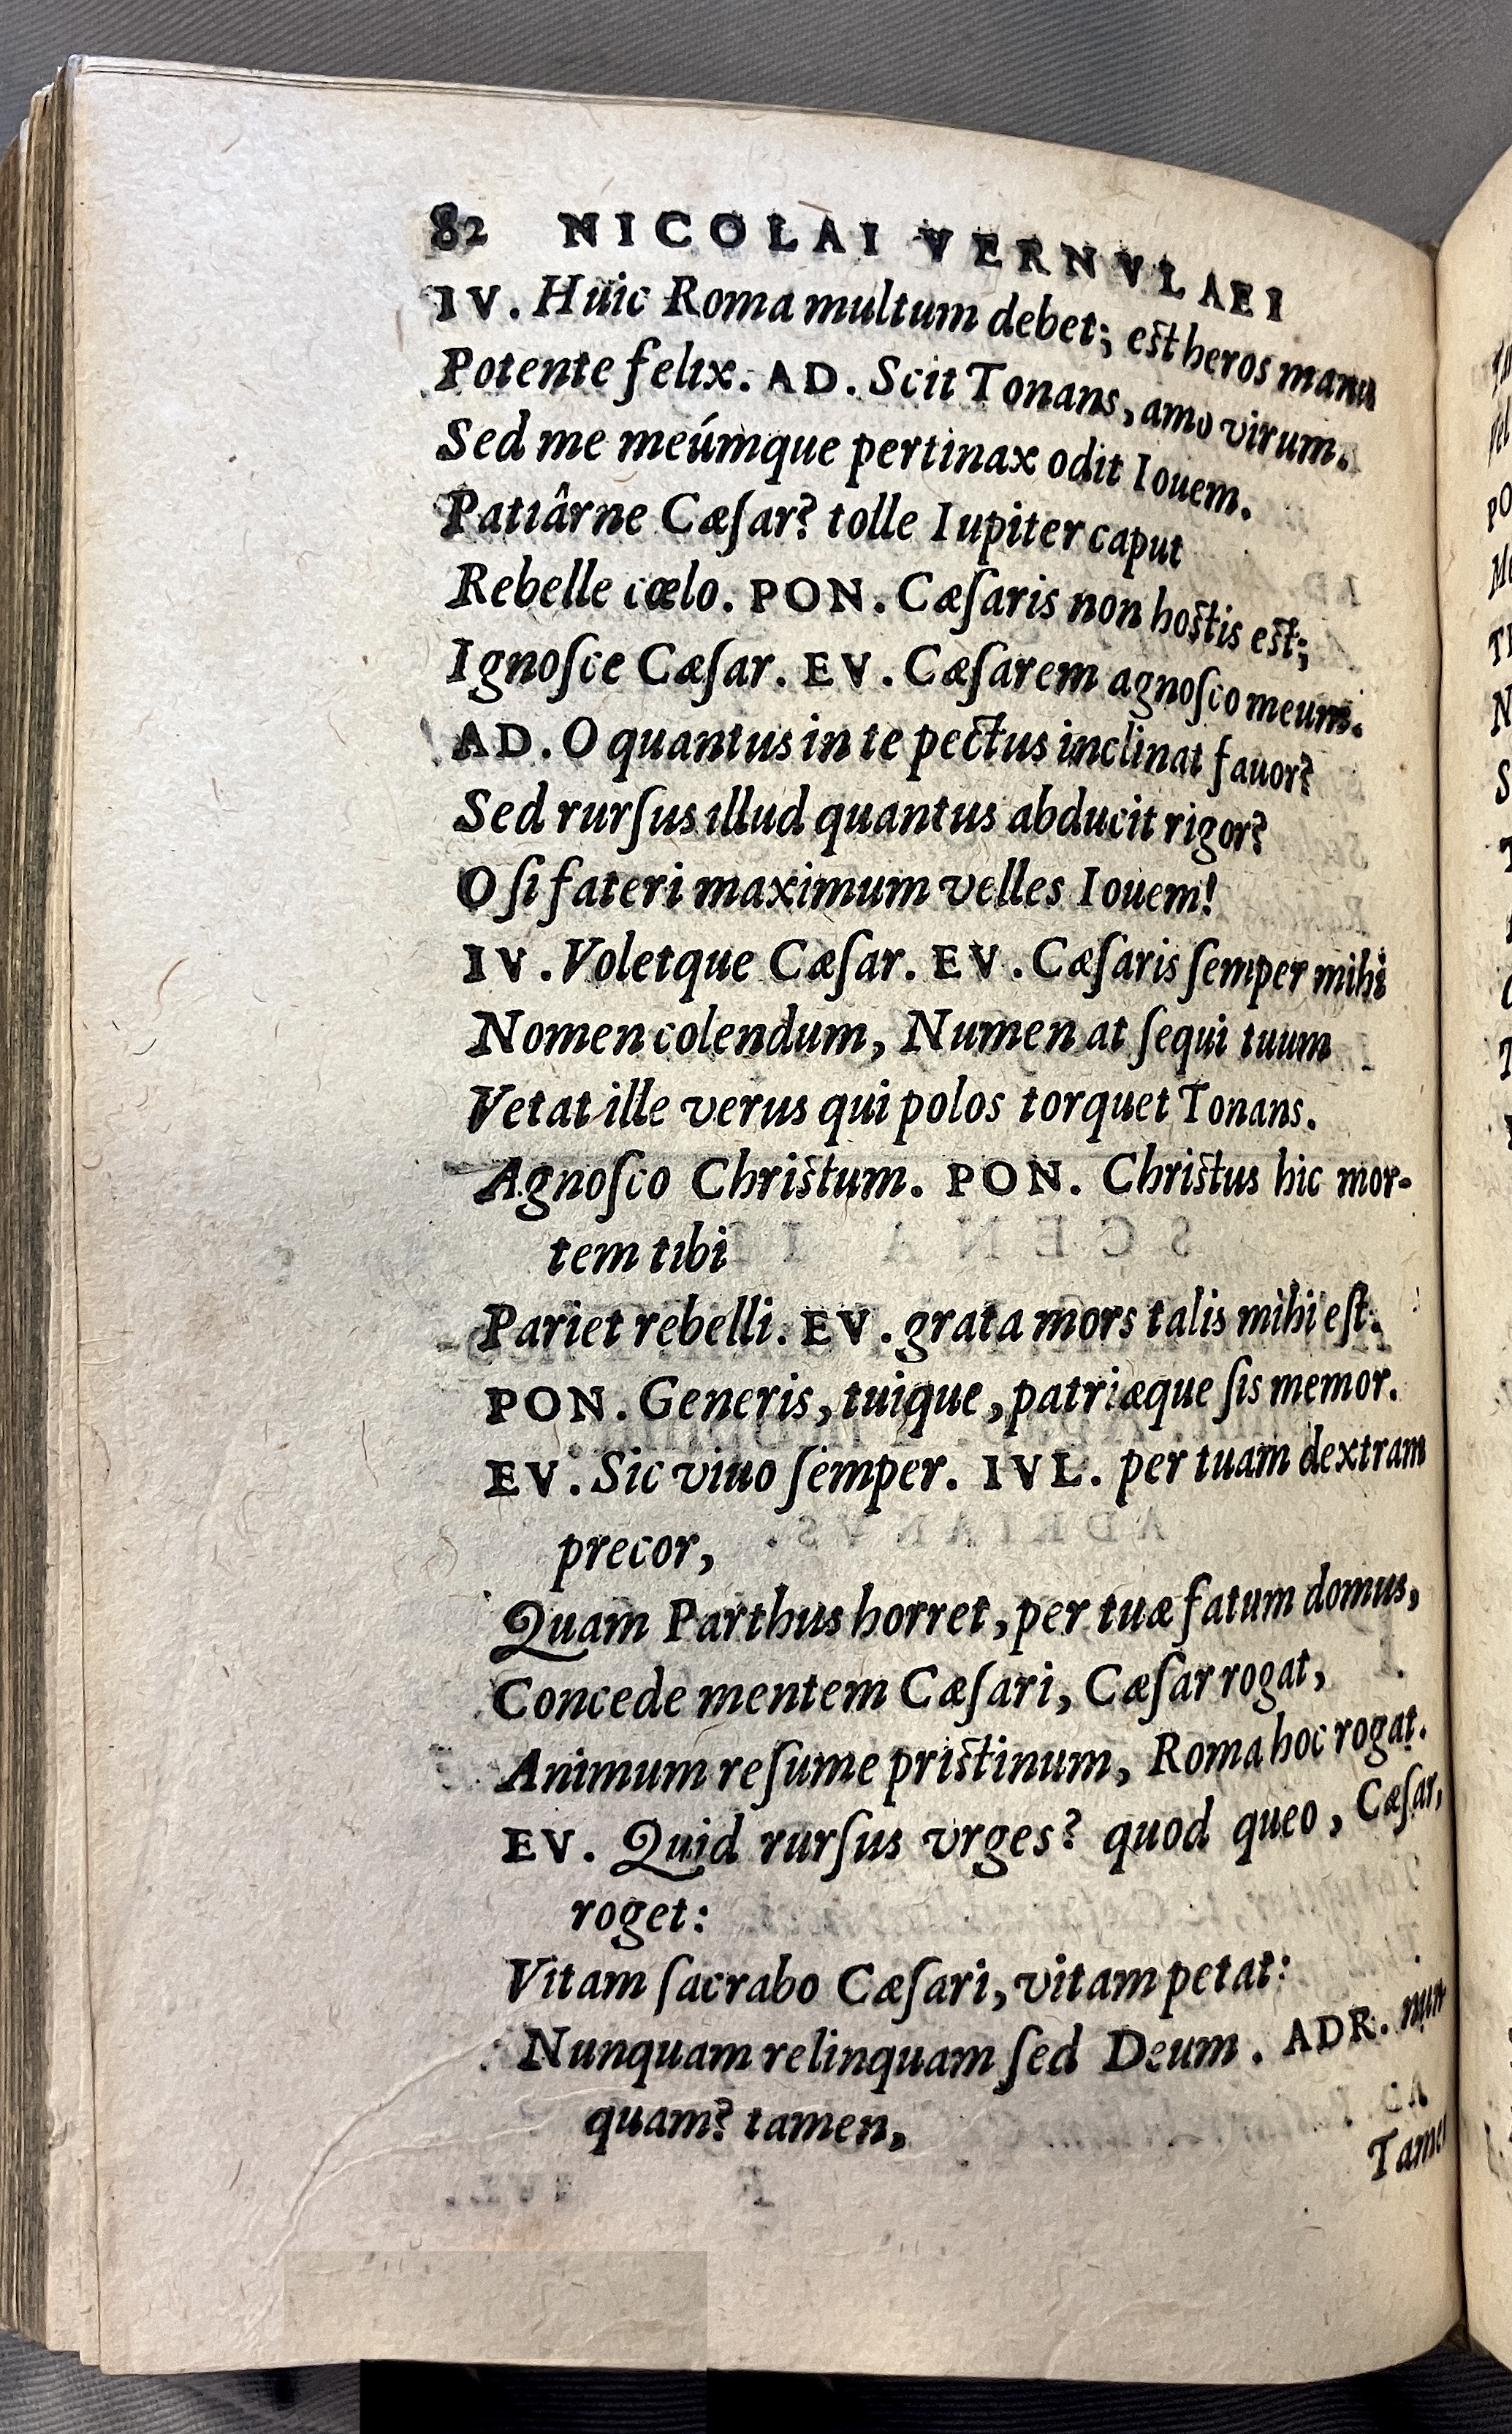 82 NICOLAI VERNVLAEI
IV. Huic Roma multum debet; est heros manu
Potente felix. AD. Scit Tonans, amo virum.
Sed me meúmque pertinax odit Iouem.
Patiârne Cæſar? tolle Iupiter caput
Rebelle cœlo. PON. Cæſaris non hostis est;
Ignoſce Cæſar. EV. Cæſarem agnoſco meum.
AD. O quantus in te pectus inclinat fauor?
Sed rurſus illud quantus abducit rigor?
O ſi fateri maximum velles Iouem!
IV. Voletque Cæſar. EV. Cæſaris ſemper mihi
Nomen colendum, Numen at ſequi tuum
Vetat ille verus qui polos torquet Tonans.
Agnoſco Christum. PON. Christus hic mor-
tem tibi
Pariet rebelli. EV. grata mors talis mihi eſt.
PON. Generis, tuique, patriæque ſis memor.
EV. Sic viuo ſemper. IVL. per tuam dextram
precor,
Quam Parthus horret, per tuæ fatum domus,
Concede mentem Cæſari, Cæſar rogat,
Animum reſume pristinum, Roma hoc rogat.
EV. Quid rurſus vrges? quod queo, Cæſar,
roget:
Vitam ſacrabo Cæſari, vitam petat:
Nunquam relinquam ſed Deum. ADR. nun
quam? tamen,